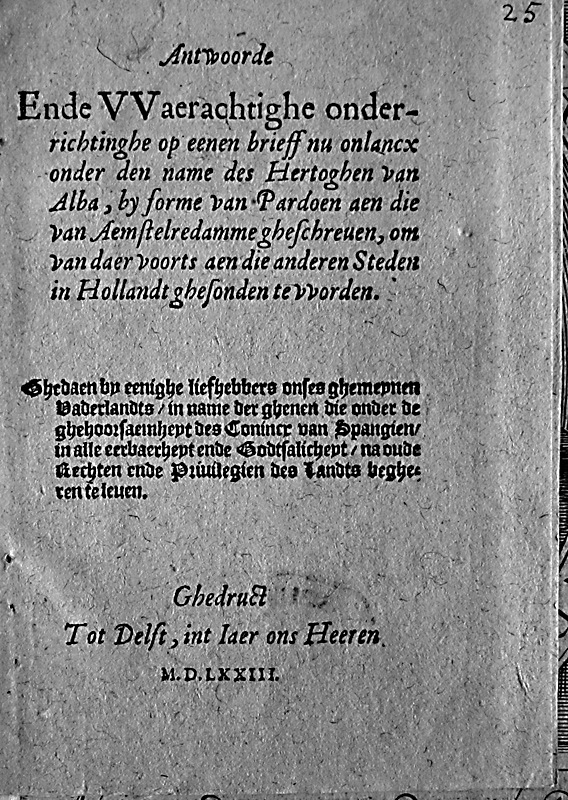 25
Antwoorde
Ende VVaerachtighe onder-
richtinghe op eenen brieff nu onlancx
onder den name des Hertoghen van
Alba, by forme van Pardoen aen die
van Aemſtelredamme gheſchreuen, om
van daer voorts aen die anderen Steden
in Hollandt gheſonden te vvorden.
Ghedaen by eenighe liefhebbers onſes ghemeynen
Vaderlandts / in name der ghenen die onder de
ghehoorſaemheyt des Conincx van Spangien/
in alle eerbaerheyt ende Godtſalicheyt / na oude
Rechten ende Priuilegien des Landts beghe-
ren te leuen.
Ghedruct
Tot Delft, int Iaer ons Heeren.
M.D.LXXIII.